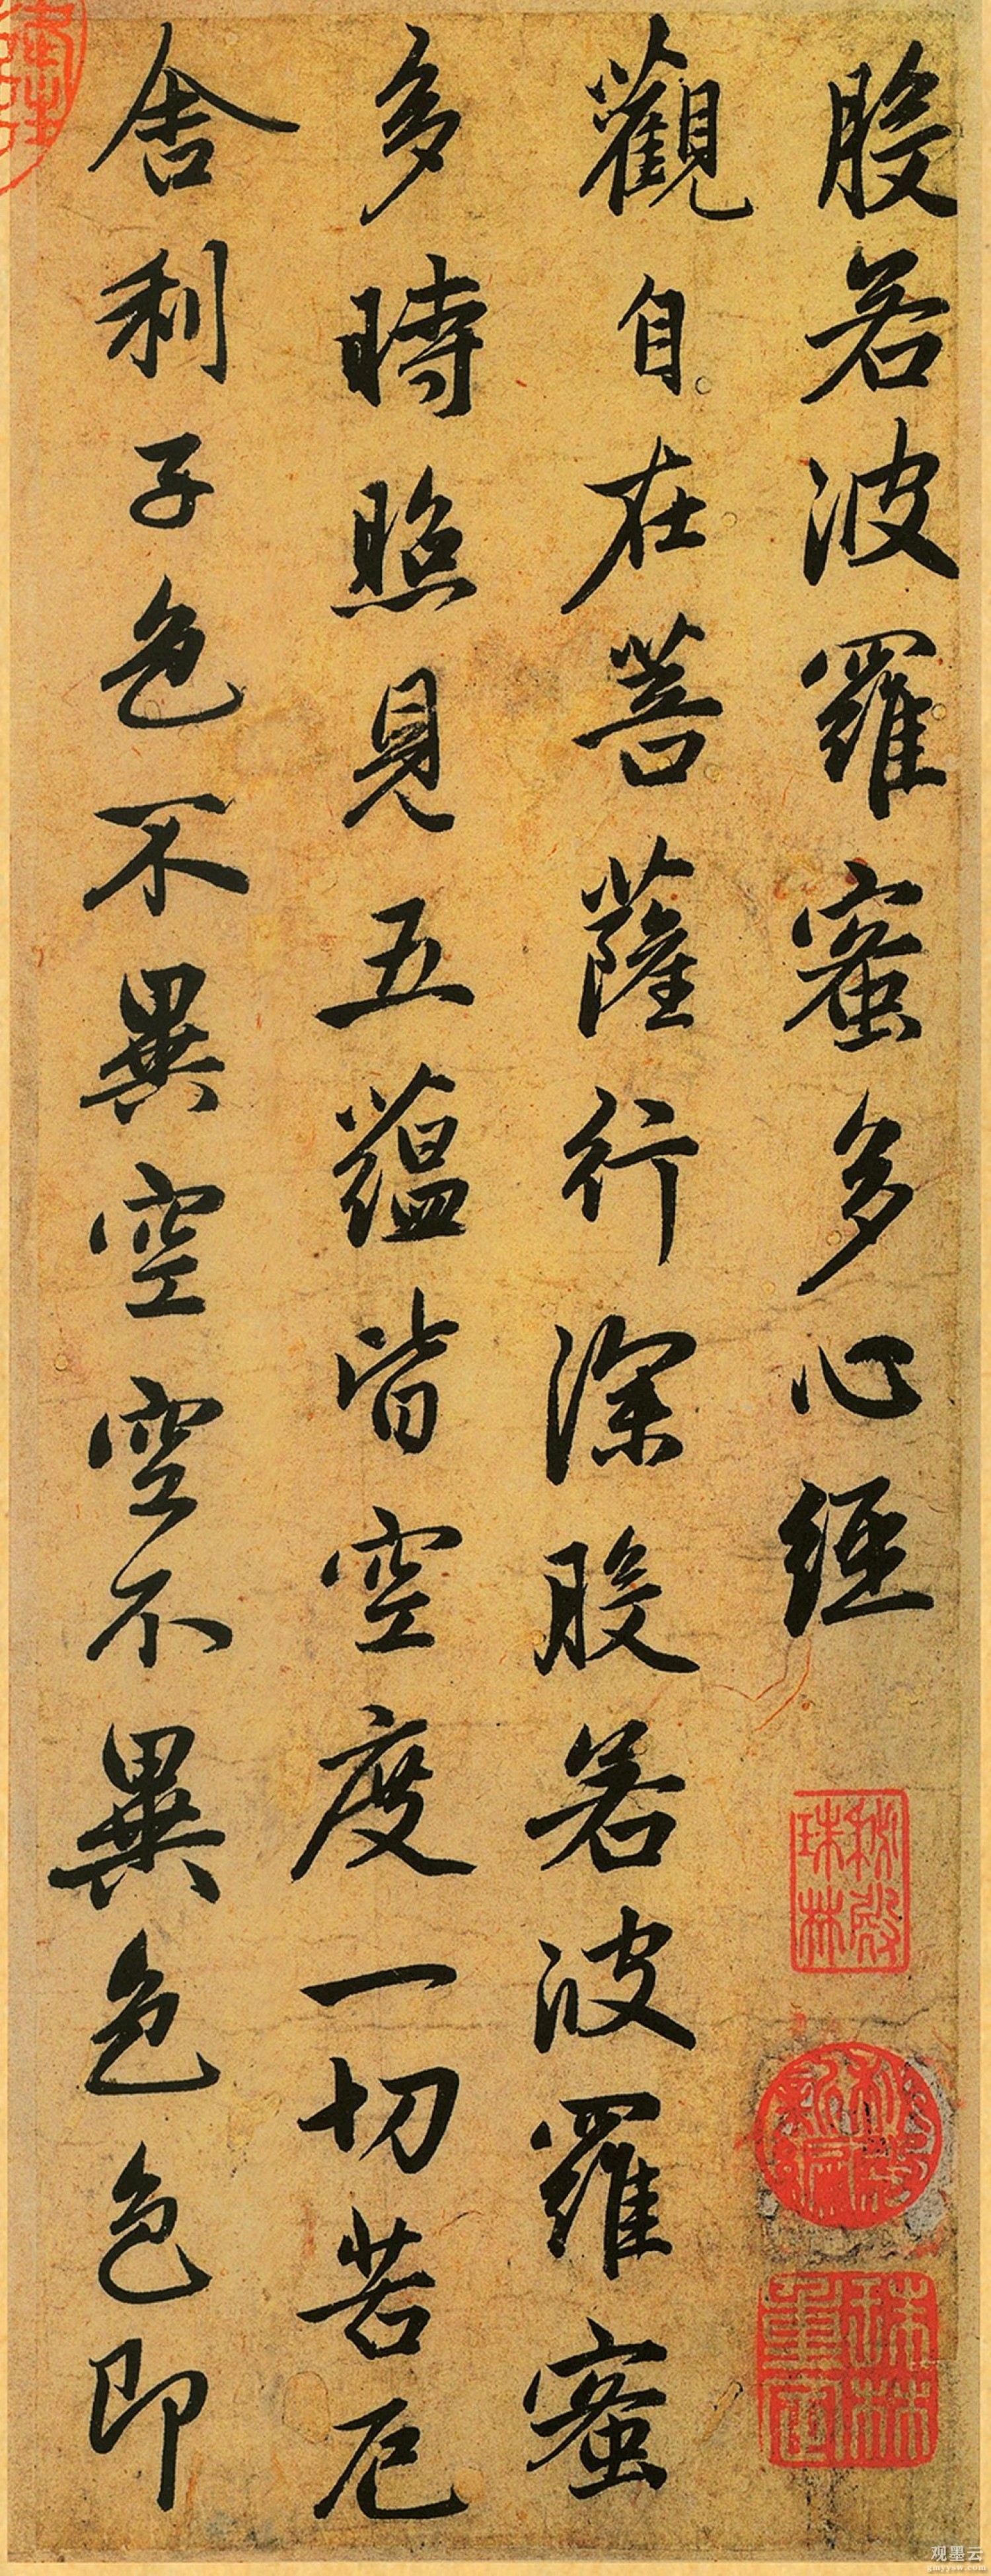 般若波羅蜜多心經
觀自在菩薩行深般若波羅蜜
多時照見五蘊皆空度一切苦厄
舍利子色不異空空不異色色即
秘殿珠林
珠林重定
观墨云
gmyysw.com